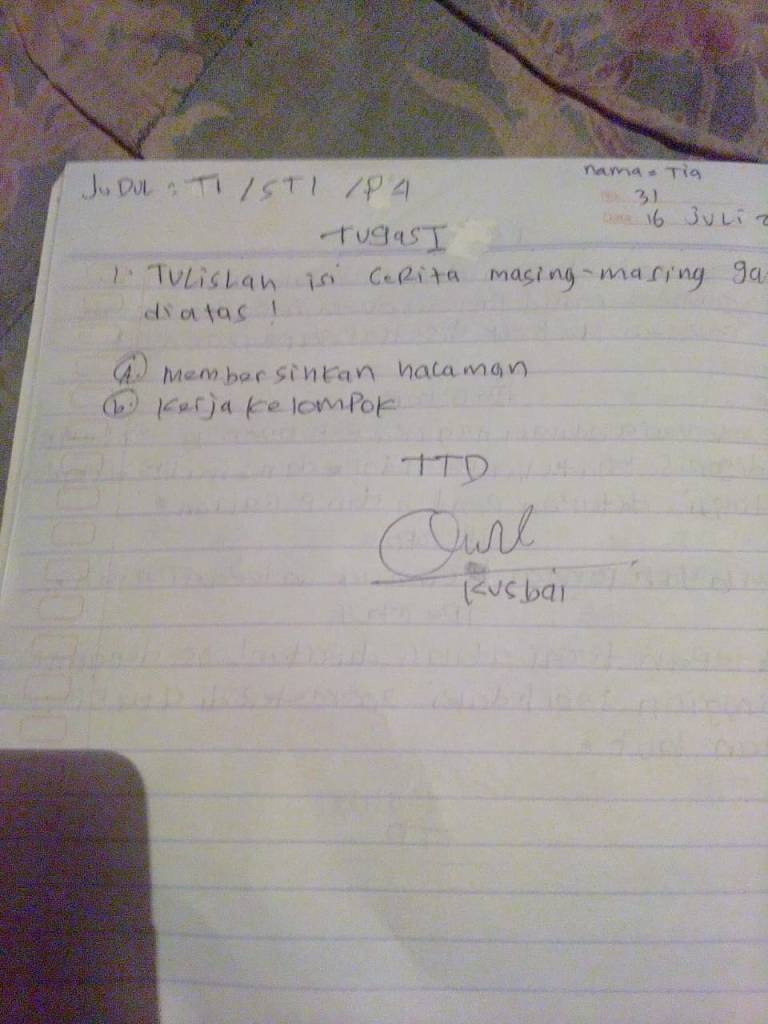 JUDUL : T1 / ST1 / P4
nama = Tia
31
16 JULI
TUgAS I
1. TULisLah isi CeRita masing-masing ga
diatas !
a. membersihkan halaman
b. Kerja kelompok
TTD
Kusbai